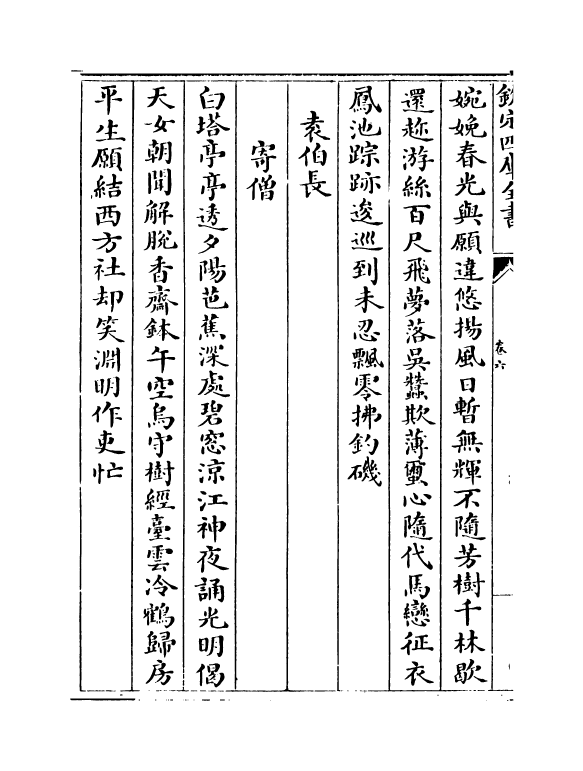 欽定四庫全書
卷六
婉娩春光與願違悠揚風日暫無輝不隨芳樹千林歇
還趂游絲百尺飛夢落吳蠶欺薄繭心隨代馬戀征衣
鳳池踪跡逡巡到未忍飄零拂釣磯
袁伯長
寄僧
白塔亭亭透夕陽芭蕉深處碧窓涼江神夜誦光明偈
天女朝聞解脫香齋鉢午空烏守樹經臺雲冷鶴歸房
平生願結西方社却笑淵明作吏忙